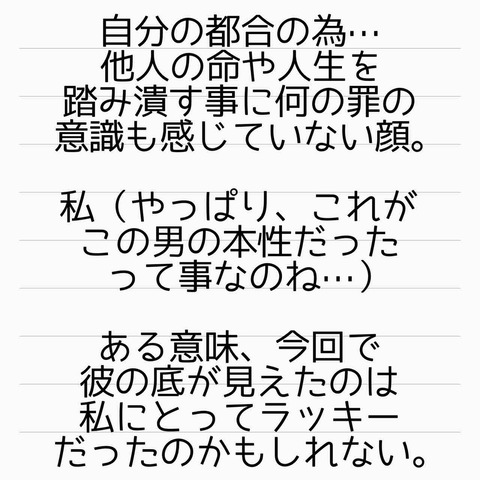 自分の都合の為…
他人の命や人生を
踏み潰す事に何の罪の
意識も感じていない顔。
私（やっぱり、これが
この男の本性だった
って事なのね…）
ある意味、今回で
彼の底が見えたのは
私にとってラッキー
だったのかもしれない。